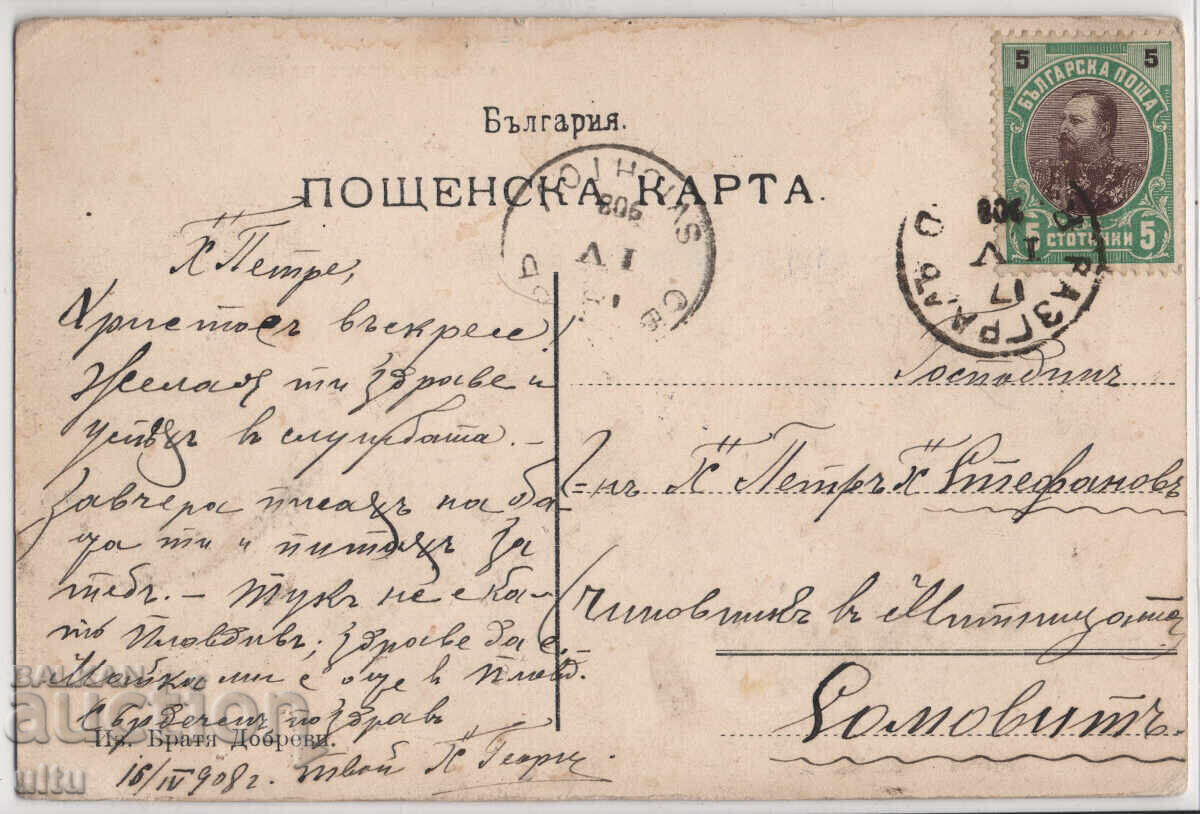 България.
ПОЩЕНСКА КАРТА.
5 5
БЪЛГАРСКА ПОЩА
5 СТОТИНКИ 5
РАЗГРАДЪ
17
IV
908
IV
908
Х"Петре,
Христосъ въскресе!
Желая ти здраве и
успѣхъ в службата. –
Завчера писахъ на ба-
ща ти и питахъ за
тебъ. – Тукъ не е ка-
то Пловдивъ; здраве да е.
Майка ми е още в Пловд.
Сърдеченъ поздрав
Из. Братя Добреви.
16/IV 908 г. твой Х"Георги
Господинъ
Г-нъ Х"Петръ Х"Стефановъ
Чиновникъ в Митницата
Сомовитъ.
BALKAN
auction
ultu